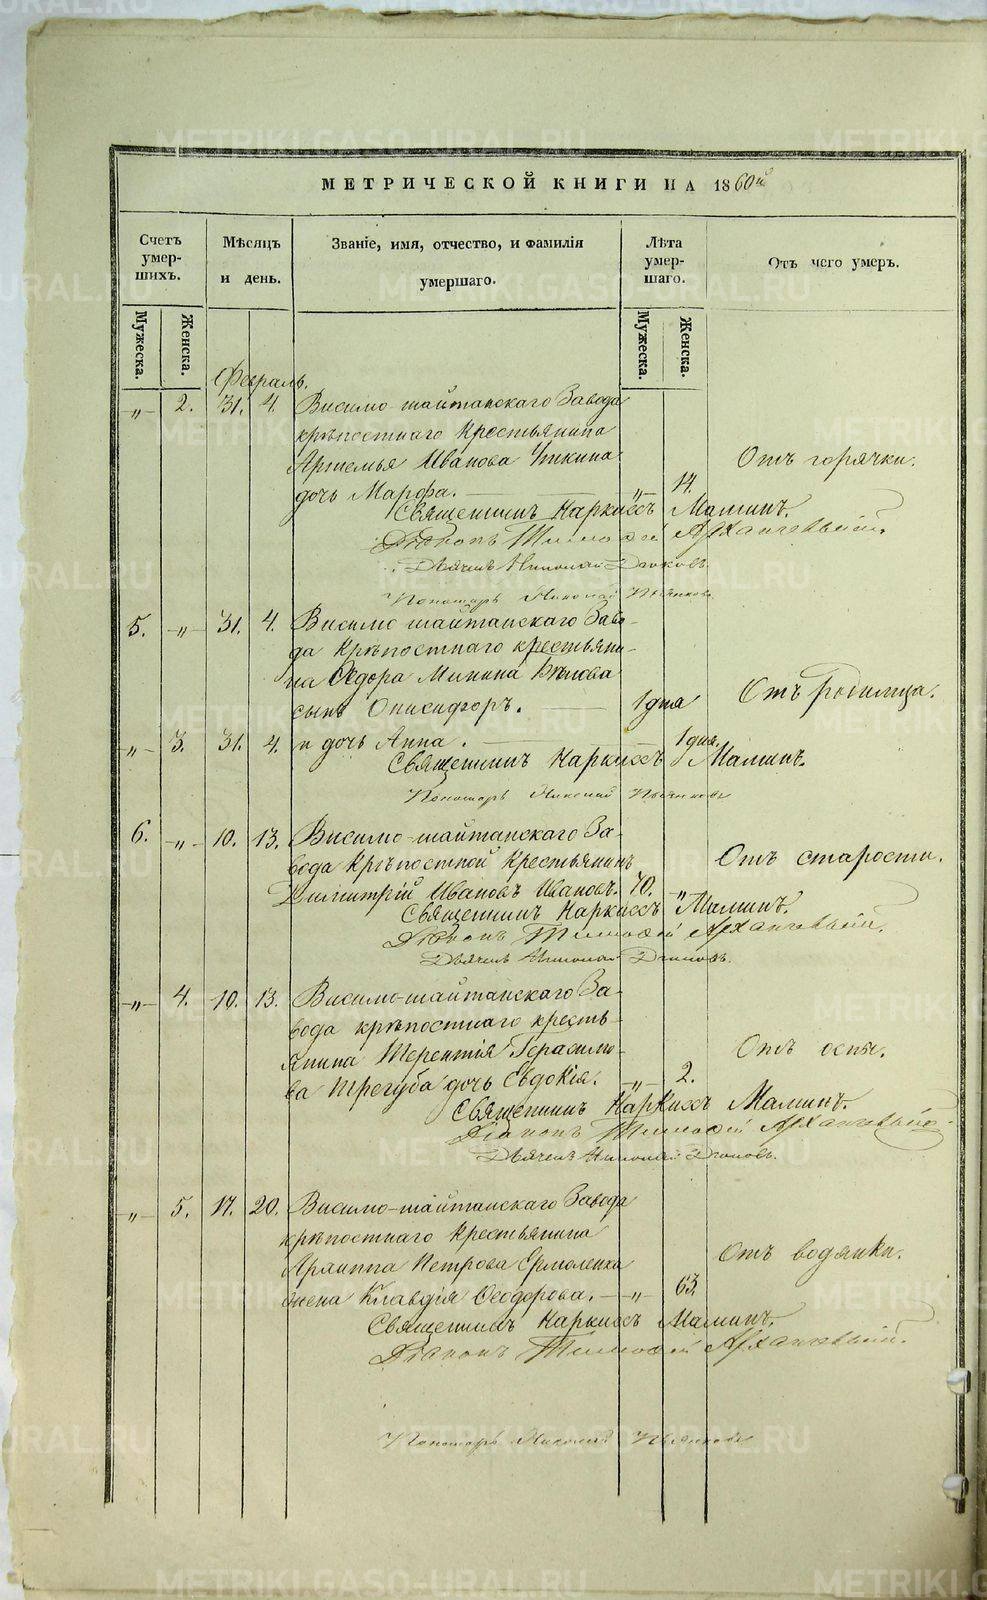 METRIKI.GASO-URAL.RU
МЕТРИЧЕСКОЙ КНИГИ НА 1860й
Счетъ умер- шихъ.
Мужеска.
Женска.
Мѣсяцъ и день.
Званіе, имя, отчество, и фамилія умершаго.
Лѣта умер- шаго.
Мужеска.
Женска.
Отъ чего умеръ.
Февраль.
„ 2. 31. 4. Висимо-шайтанскаго Завода
крѣпостнаго Крестьянина
Артемья Иванова Уткина
Отъ горячки.
дочь Марфа. — „ 14.
Священникъ Наркиссъ Маминъ.
Діаконъ Тимофей Архангельскій.
Дьячекъ Николай
Пономарь Николай
5. „ 31. 4. Висимо шайтанскаго Заво-
да Крѣпостнаго крестьяни-
на Ѳедора Минина Бѣлова
сынъ Онисифоръ. — 1 дня
Отъ Родимца.
„ 3. 31. 4. и дочь Анна. — 1 дня.
Священникъ Наркиссъ Маминъ.
Пономарь Николай
6. „ 10. 13. Висимо-шайтанскаго За-
вода Крѣпостной Крестьянинъ
Отъ старости.
Димитрій Ивановъ Ивановъ. 70. „
Священникъ Наркиссъ Маминъ.
Діаконъ Тимофей Архангельскій.
Дьячекъ Николай
„ 4. 10. 13. Висимо-шайтанскаго За-
вода крѣпостнаго кресть-
янина Терентія Герасимо-
Отъ оспы.
ва Трегуба дочь Евдокія. „ 2.
Священникъ Наркиссъ Маминъ.
Діаконъ Тимофей Архангельскій
Дьячекъ Николай
„ 5. 17. 20. Висимо-шайтанскаго Завода
крѣпостнаго Крестьянина
Архиппа Петрова Ермоленка
Отъ водянки.
жена Клавдія Ѳеодорова. — „ 63.
Священникъ Наркиссъ Маминъ.
Діаконъ Тимофей Архангельскій.
Пономарь Николай